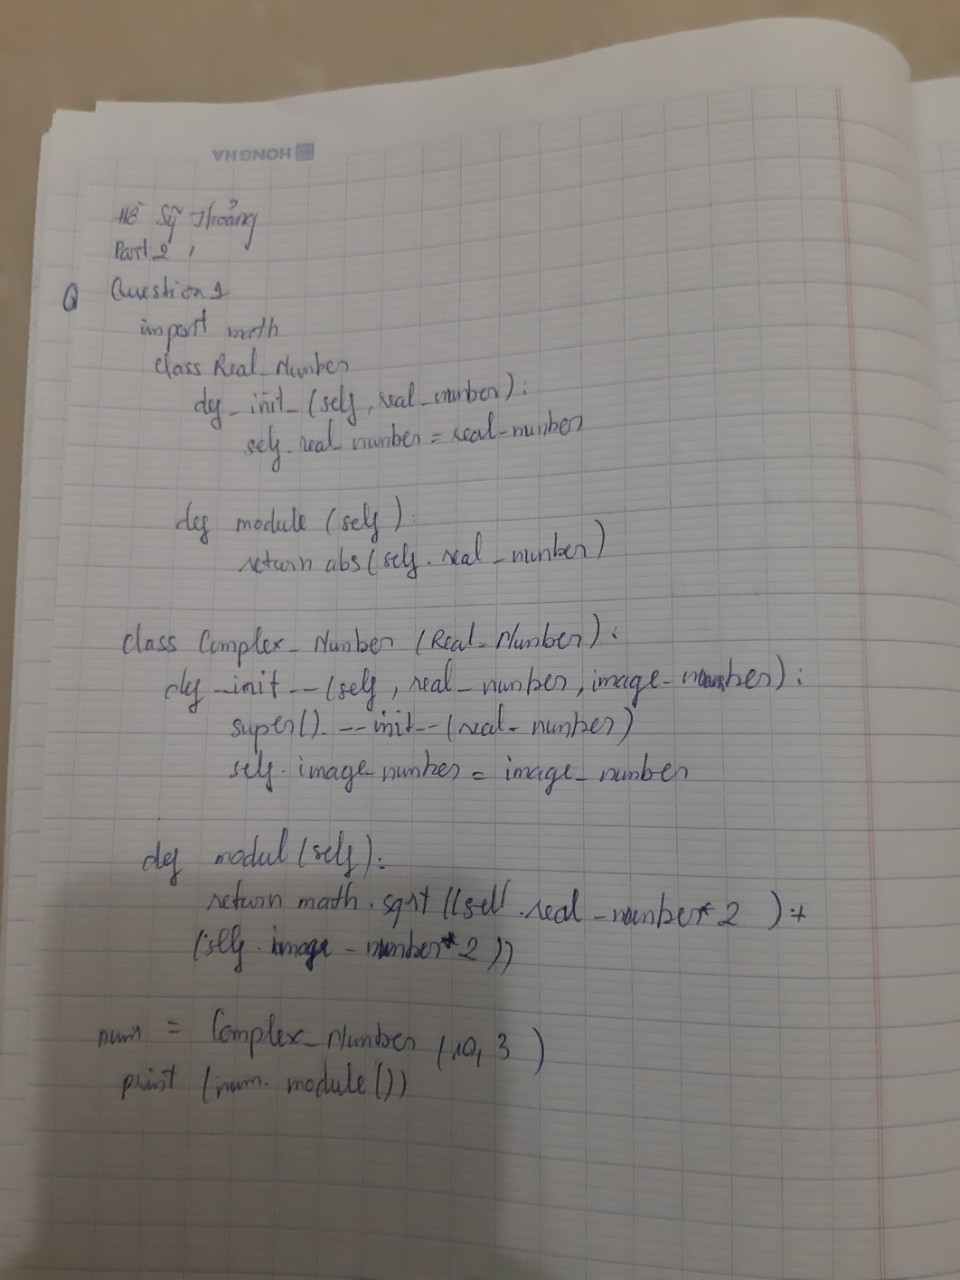 HONGHA
Hồ Sỹ Thoảng
Part 2,
Q Question 1
import math
class Real_Number
def_init_(self, real_number):
self.real_number = real_number
def module (self):
return abs(self.real_number)
class Complex_Number (Real_Number):
def_init__(self, real_number, image_number):
super().__init__(real_number)
self.image_number = image_number
def modul (self):
return math.sqrt((self.real_number*2)+
(self.image_number*2))
num = Complex_Number (10, 3)
print (num.module())